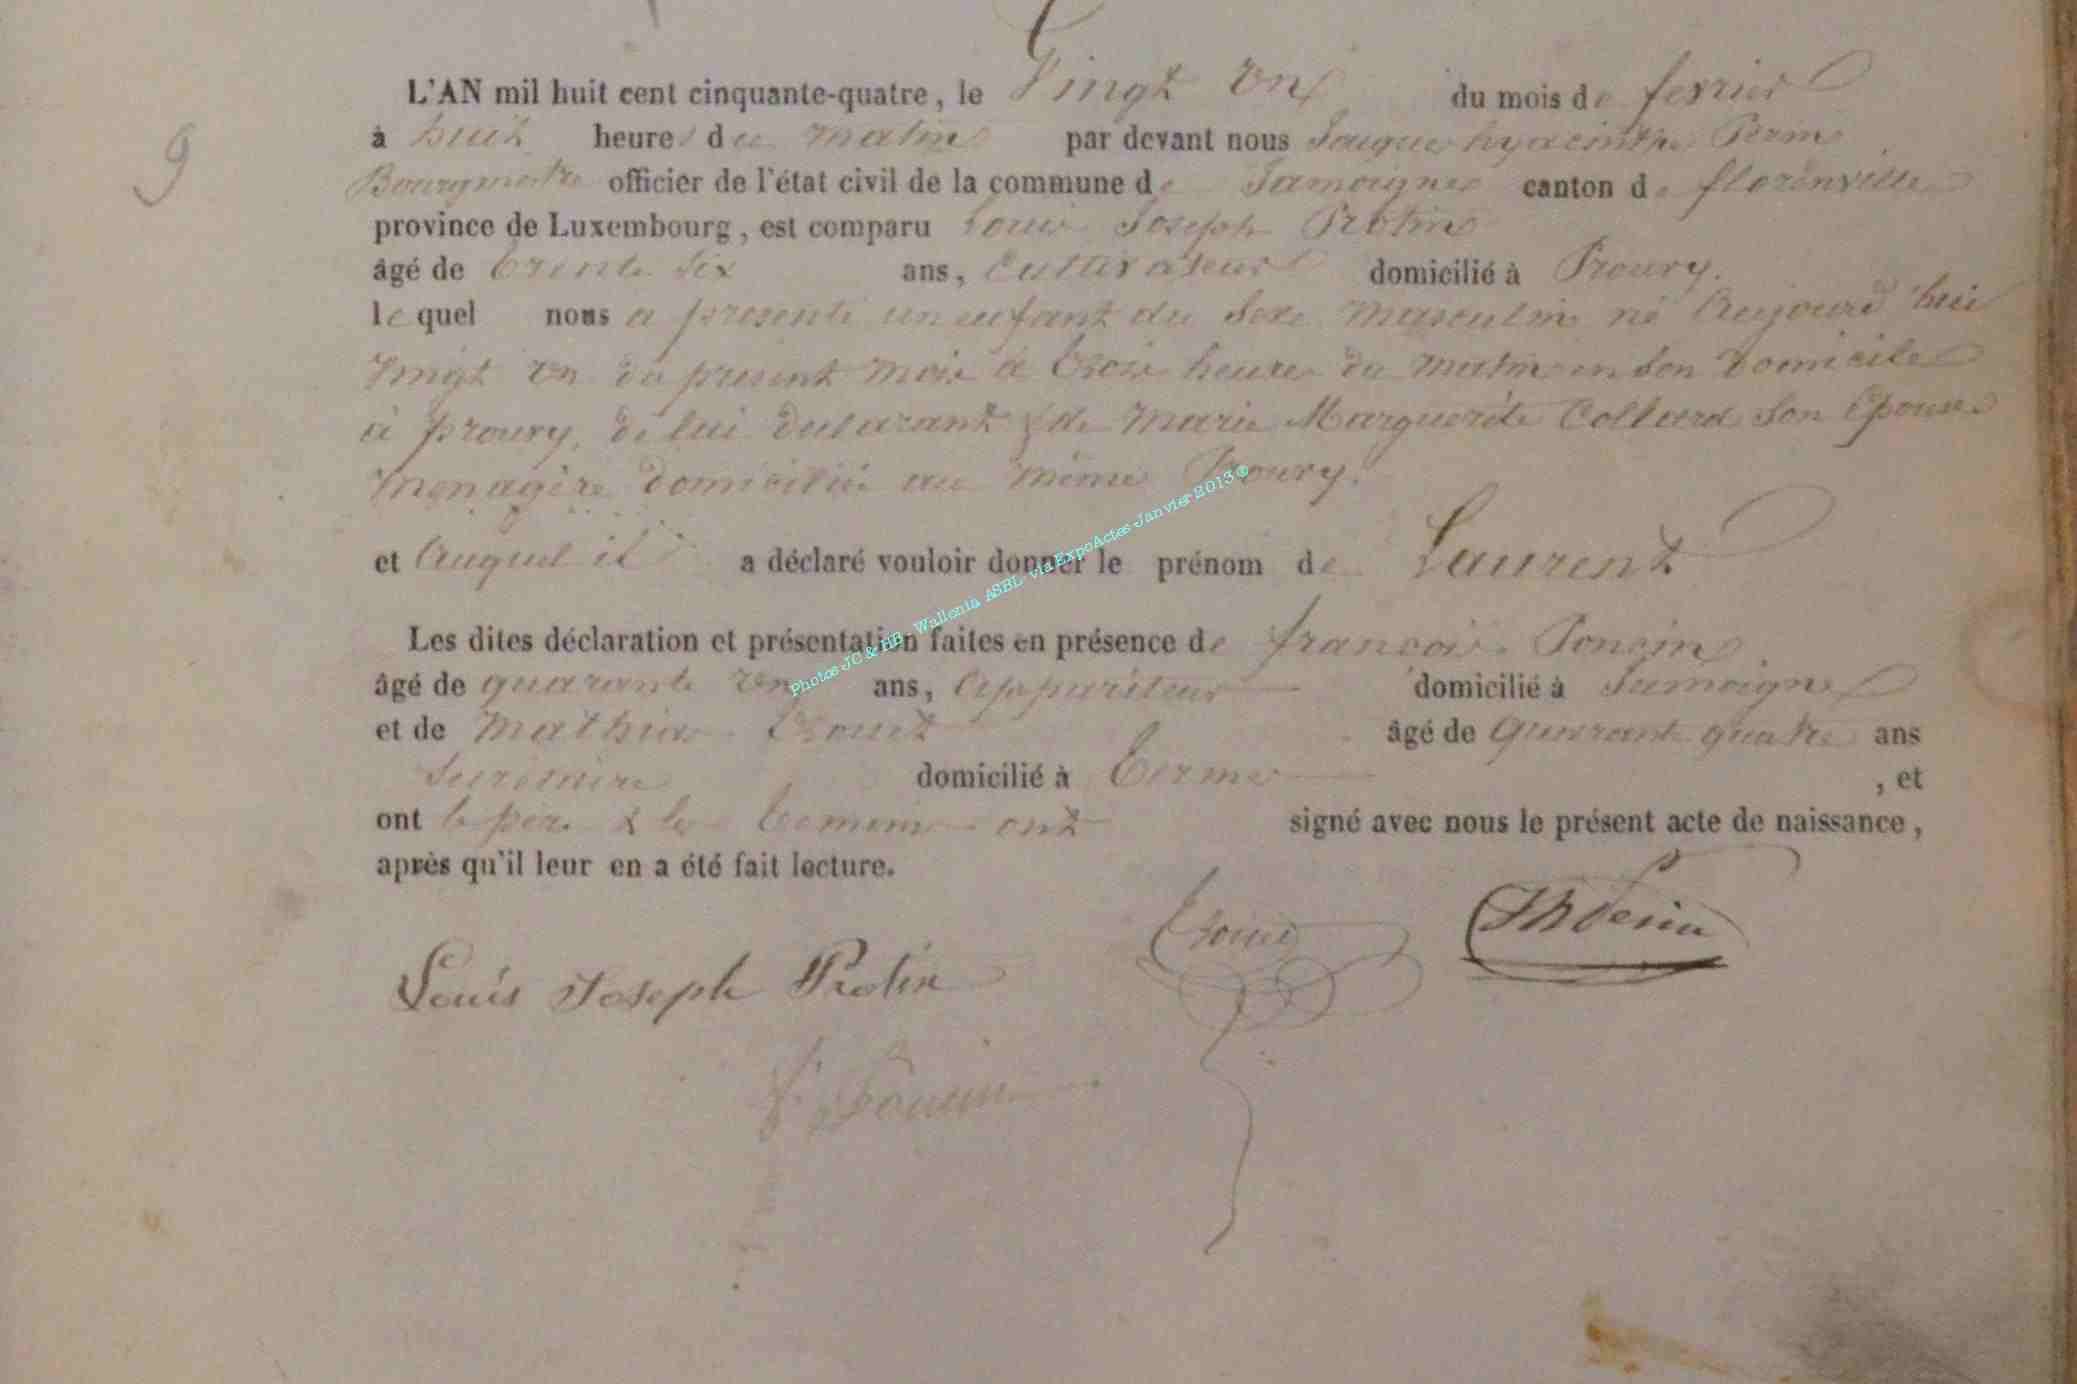 L'AN mil huit cent cinquante-quatre, le Vingt un du mois de fevrier
9
à huit heures du matin par devant nous Jaques hyacinthe Perin
Bourgmestre officier de l'état civil de la commune de Jamoigne canton de florenville
province de Luxembourg, est comparu Louis Joseph Protin
âgé de trente six ans, Cultivateur domicilié à Prouvy.
lequel nous a presenté un enfant du sexe masculin né Aujourd'hui
vingt un du present mois à trois heures du matin en son domicile
à prouvy, de lui declarant & de Marie Marguerite Collard son Epouse
menagère domiciliée au même Prouvy.
et Auquel il a déclaré vouloir donner le prénom de Laurent
Les dites déclaration et présentation faites en présence de francois Poncin
âgé de quarante un ans, Appariteur domicilié à Jamoigne
et de Mathias âgé de Quarante quatre ans
domicilié à Termes, et
ont le père & les temoins ont signé avec nous le présent acte de naissance,
après qu'il leur en a été fait lecture.
Louis Joseph Protin
Poncin
Photos JC & HB, Wallonia ASBL via ExpoActes Janvier 2013 ©